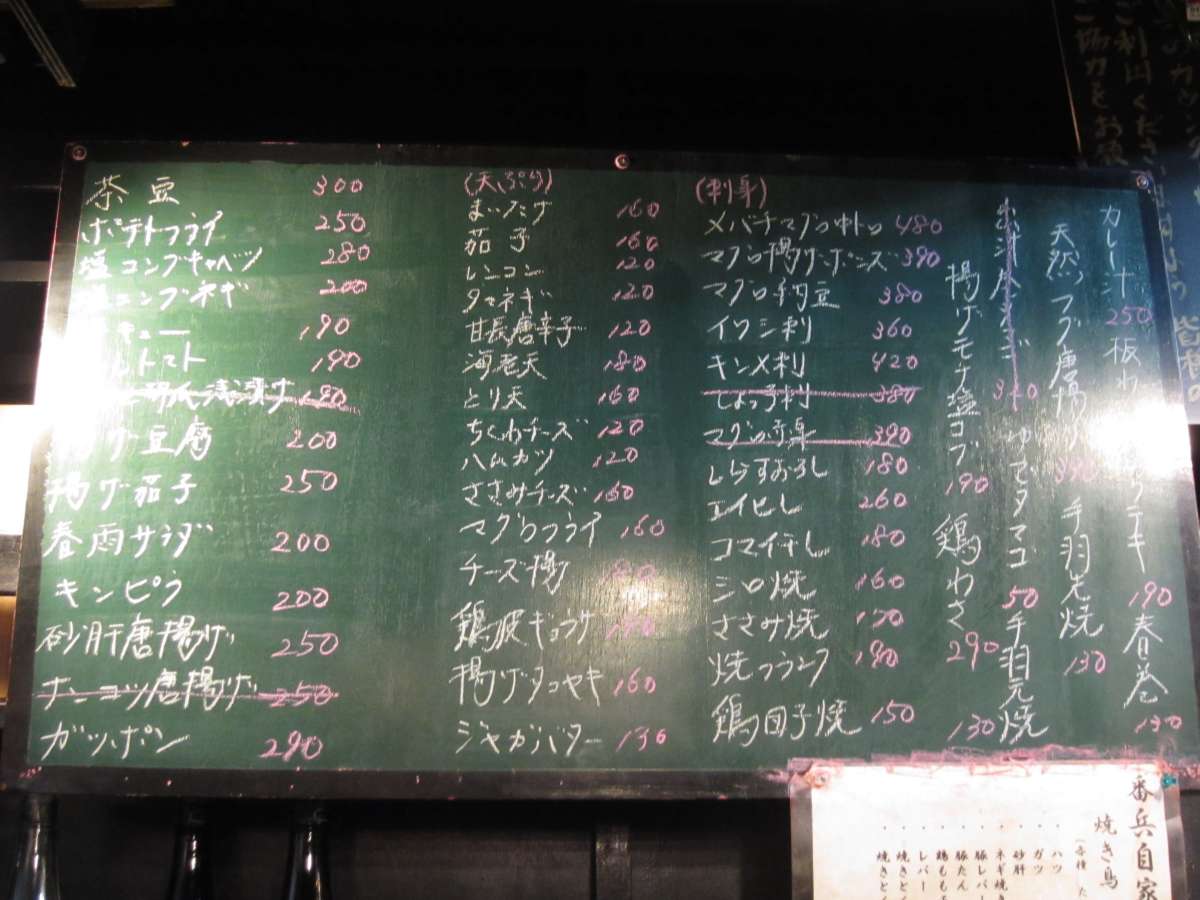 茶豆 300
ポテトフライ 250
塩コンブキャベツ 280
コンブネギ 200
キュー 190
トマト 190
浅漬け 190
豆腐 200
揚げ茄子 250
春雨サラダ 200
キンピラ 200
砂肝唐揚げ 250
ナンコツ唐揚げ 250
ガツポン 290
(天ぷら)
まいたけ 160
茄子 160
レンコン 120
タマネギ 120
甘長唐辛子 120
海老天 180
とり天 160
ちくわチーズ 120
ハムカツ 120
ささみチーズ 160
マグロフライ 160
チーズ揚
鶏皮ギョウザ
揚げタコヤキ 160
ジャガバター 130
(刺身)
メバチマグロ中トロ 480
マグロ揚げポンズ 390
マグロ納豆 380
イワシ刺 360
キンメ刺 420
しょっ子刺 380
マグロ 390
しらすおろし 180
エイヒレ 260
コマイ干し 180
シロ焼 160
ささみ焼 150
焼フランク 180
鶏団子焼 150
カレー汁 250
板わ
テキ 190
春巻 130
天然フグ唐揚げ
手羽先焼 130
ゆでタマゴ 50
手羽元焼 130
揚げモチ塩コブ 190
鶏わさ 290
番兵自家
焼き鳥
ハツ
ガツ
砂肝
ネギ焼き
豚レバー
豚たん
鶏もも
レバー
焼きと
焼きと